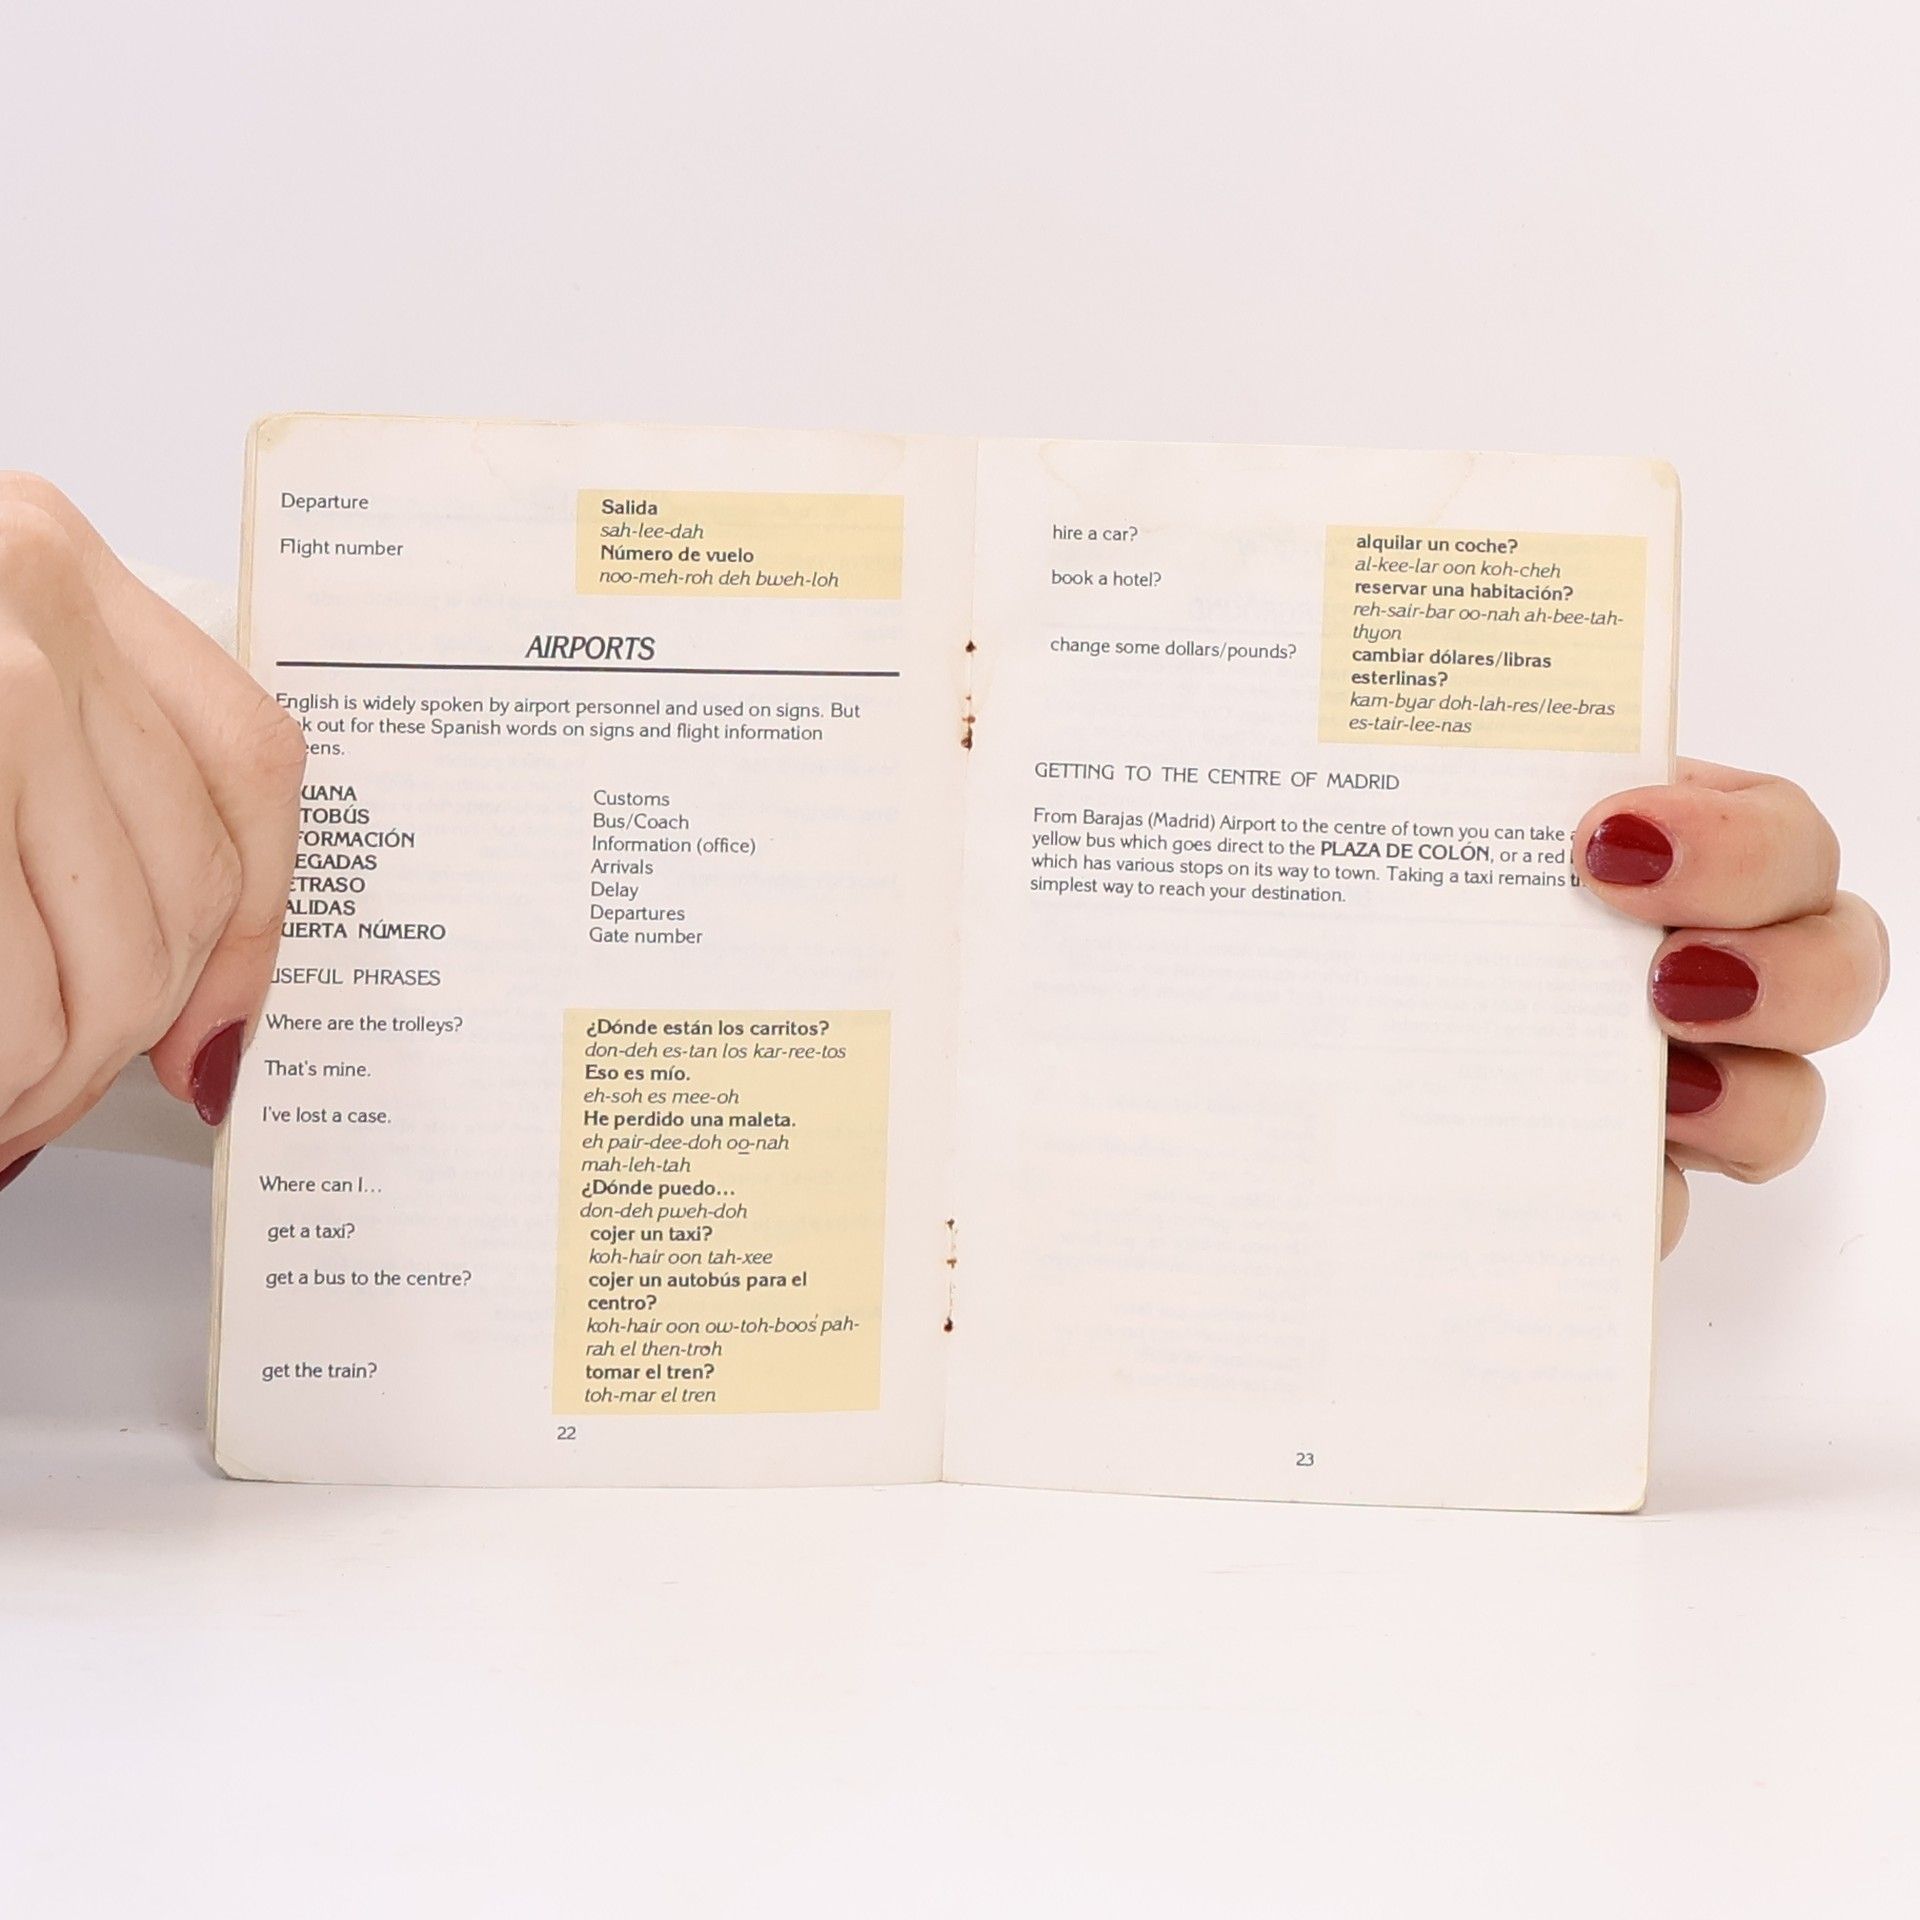 Departure
Salida
sah-lee-dah
Flight number
Número de vuelo
noo-meh-roh deh bweh-loh
AIRPORTS
English is widely spoken by airport personnel and used on signs. But
out for these Spanish words on signs and flight information
Customs
Bus/Coach
Information (office)
Arrivals
Delay
Departures
NÚMERO
Gate number
USEFUL PHRASES
Where are the trolleys?
¿Dónde están los carritos?
don-deh es-tan los kar-ree-tos
That's mine.
Eso es mío.
eh-soh es mee-oh
I've lost a case.
He perdido una maleta.
eh pair-dee-doh oo-nah
mah-leh-tah
Where can I...
¿Dónde puedo...
don-deh pweh-doh
get a taxi?
cojer un taxi?
koh-hair oon tah-xee
get a bus to the centre?
cojer un autobús para el
centro?
koh-hair oon ow-toh-boos pah-
rah el then-troh
get the train?
tomar el tren?
toh-mar el tren
22
hire a car?
alquilar un coche?
al-kee-lar oon koh-cheh
book a hotel?
reservar una habitación?
reh-sair-bar oo-nah ah-bee-tah-
thyon
change some dollars/pounds?
cambiar dólares/libras
esterlinas?
kam-byar doh-lah-res/lee-bras
es-tair-lee-nas
GETTING TO THE CENTRE OF MADRID
From Barajas (Madrid) Airport to the centre of town you can take
yellow bus which goes direct to the PLAZA DE COLÓN, or a red
which has various stops on its way to town. Taking a taxi remains
simplest way to reach your destination.
23